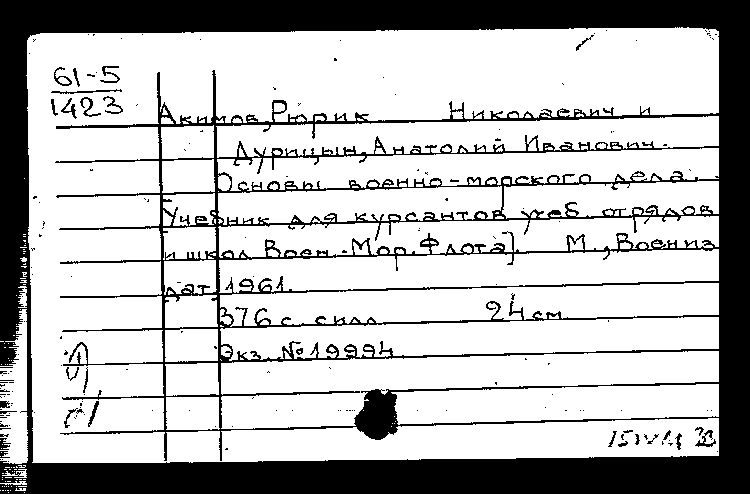 61-5
1423
Акимов, Рюрик Николаевич и
Дурицын, Анатолий Иванович.
Основы военно-морского дела.
[Учебник для курсантов учеб. отрядов
и школ Воен.-Мор. Флота]. М., Воениз
дат, 1961.
376 с. с илл. 24 см.
Экз. №19994